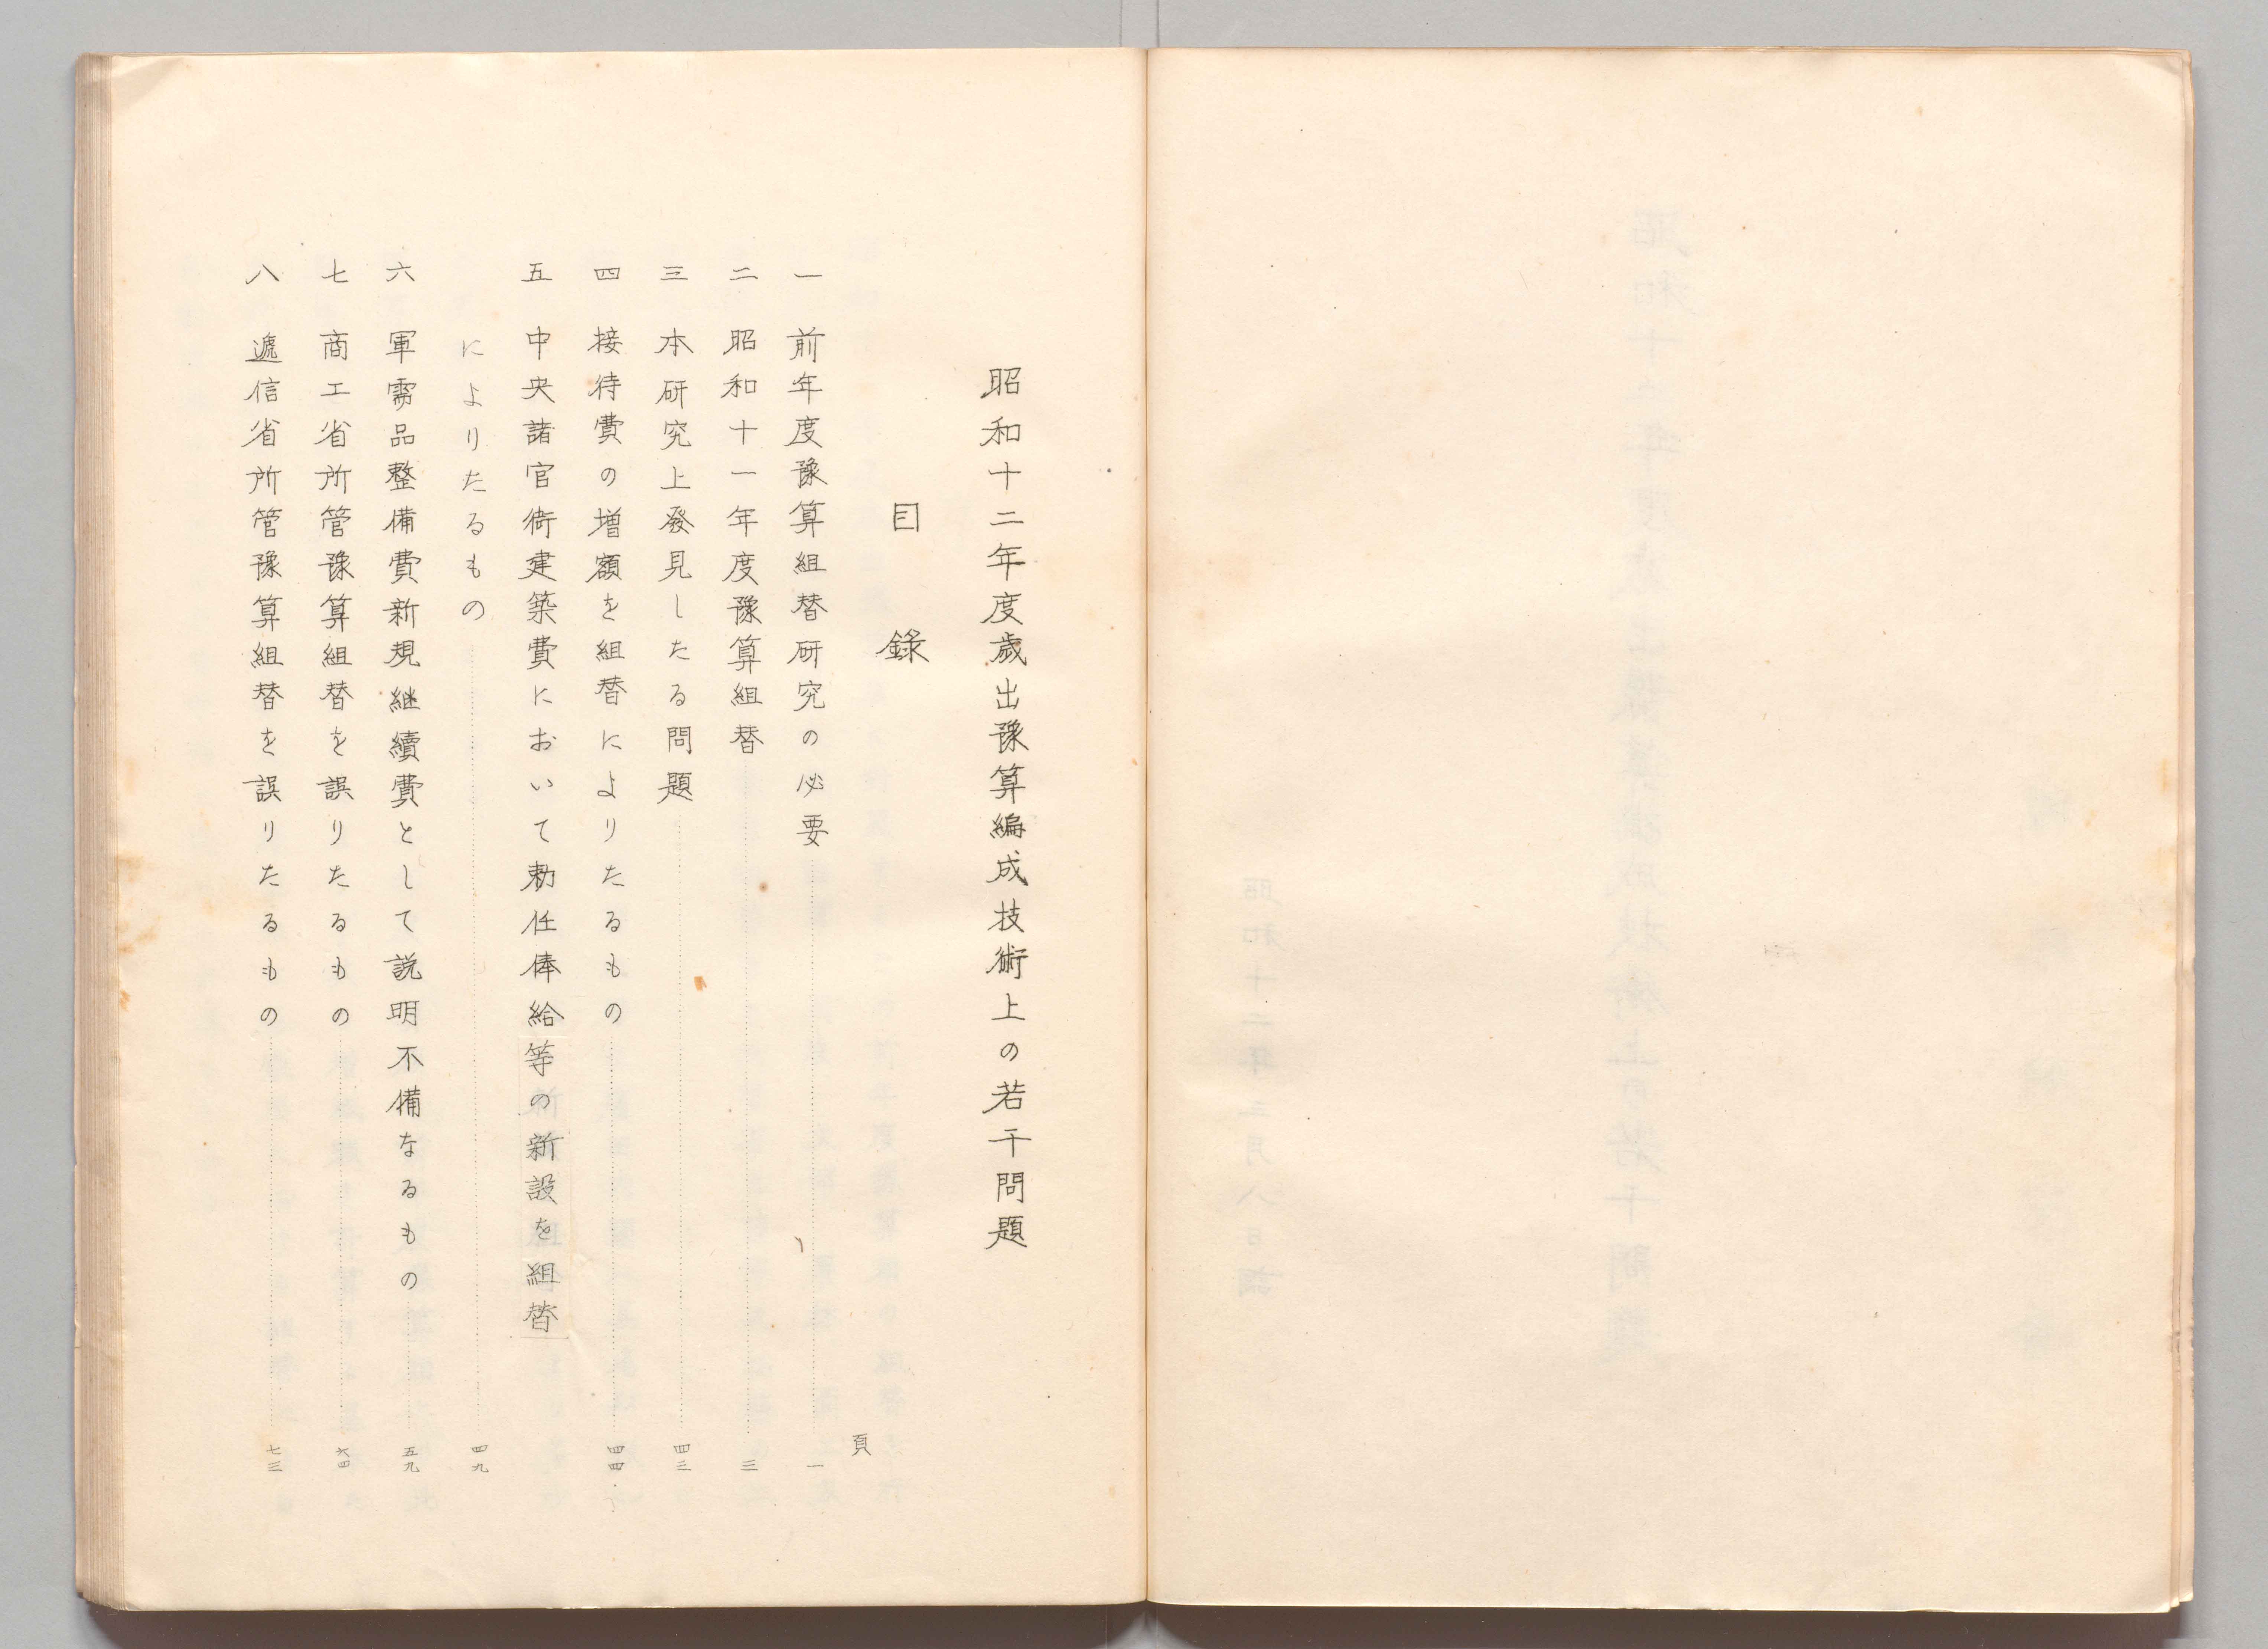 昭和十二年度歳出豫算編成技術上の若干問題
目錄
頁
一 前年度豫算組替研究の必要……一
二 昭和十一年度豫算組替……三
三 本研究上發見したる問題……四三
四 接待費の増額を組替によりたるもの……四四
五 中央諸官衙建築費において勅任俸給等の新設を組替
によりたるもの……四九
六 軍需品整備費新規継續費として説明不備なるもの……五九
七 商工省所管豫算組替を誤りたるもの……六四
八 遞信省所管豫算組替を誤りたるもの……七三